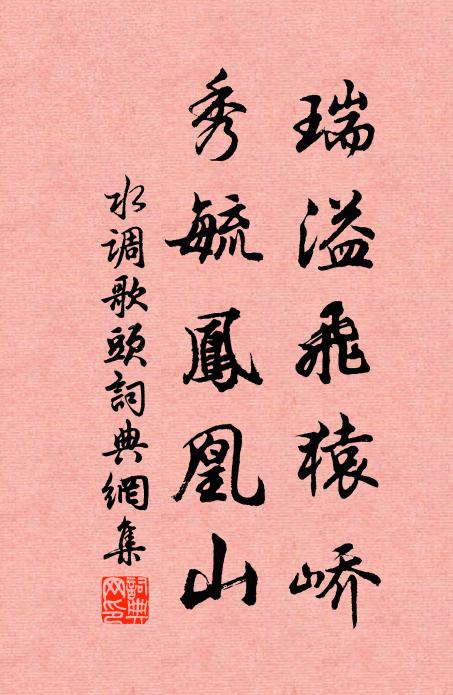 瑞溢飛猿嶠
秀毓鳳凰山
水调歌頭詞典網集
詞典網印